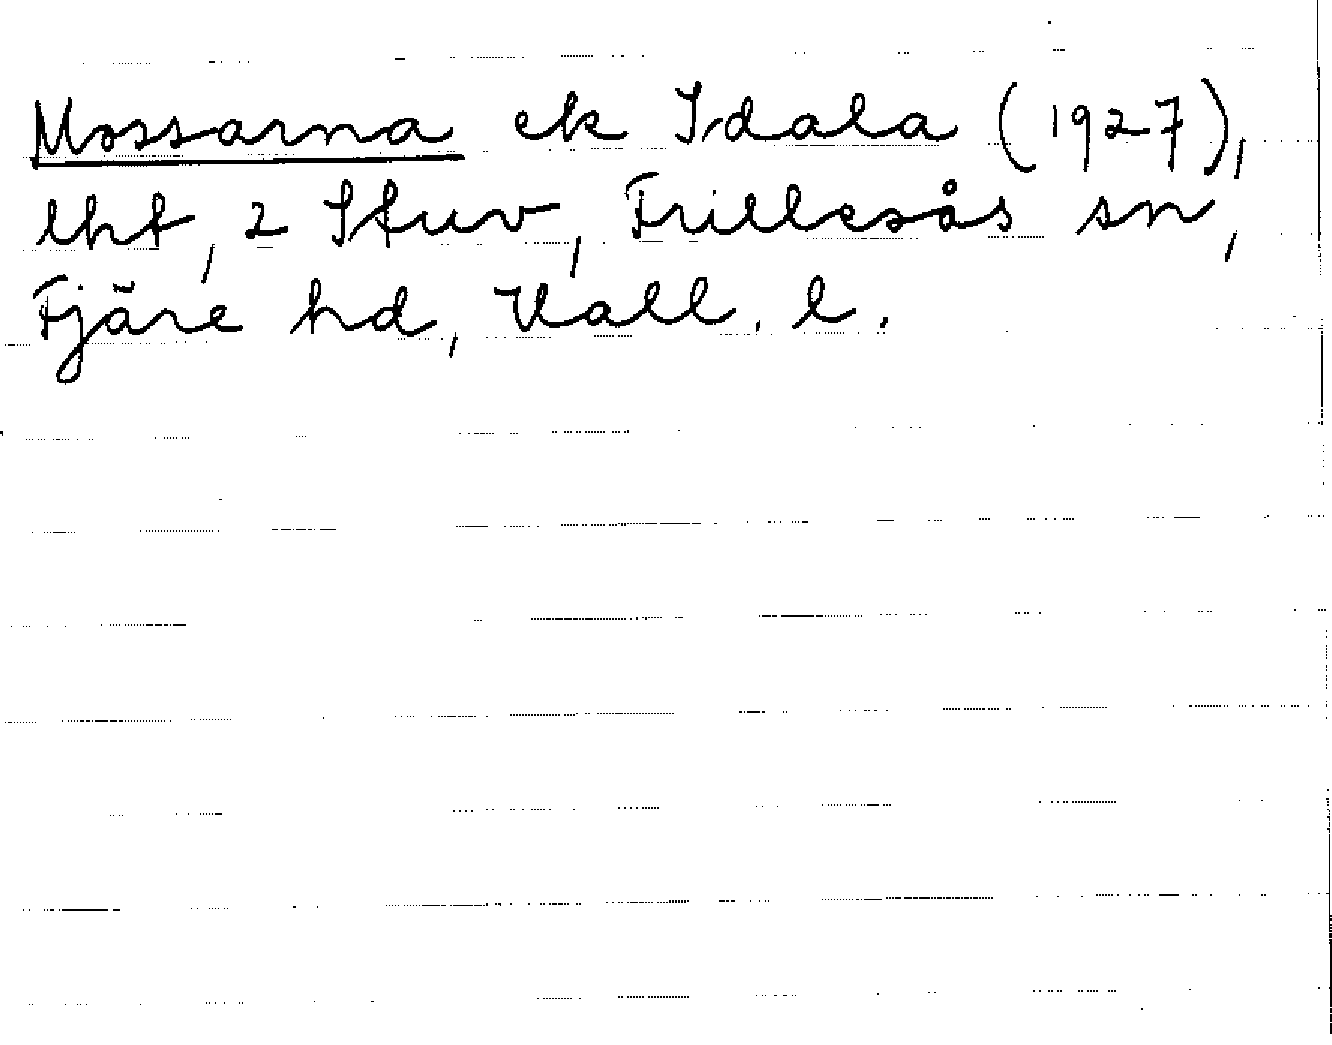 Mossarna ek Idala (1927),
lht, 2 Stuv, Frillesås sn,
Fjäre hd, Hall. l.